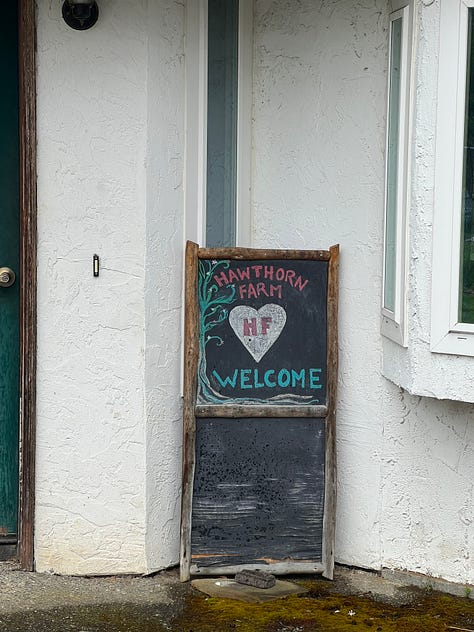 HAWTHORN
FARM
HF
WELCOME